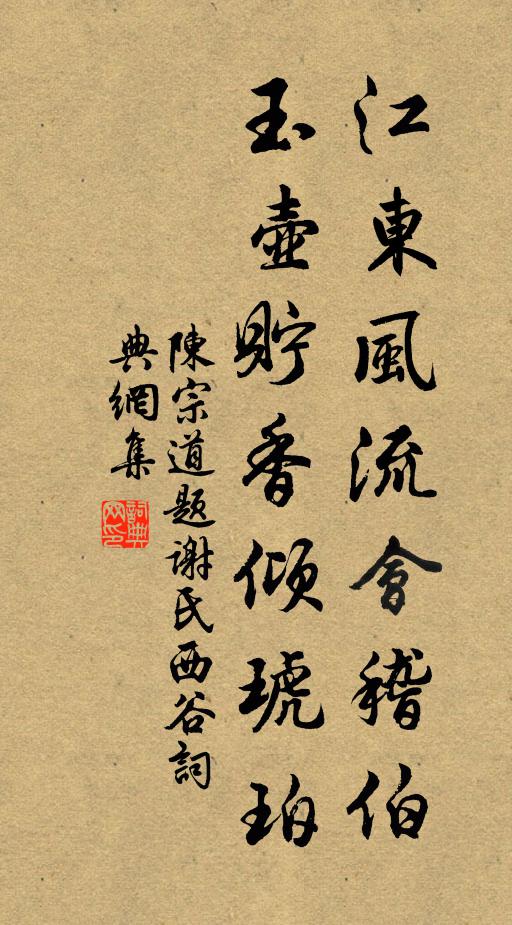 江東風流會稽伯
玉壺貯香傾琥珀
陳宗道題謝氏西谷詞
典網集
詞典
网印